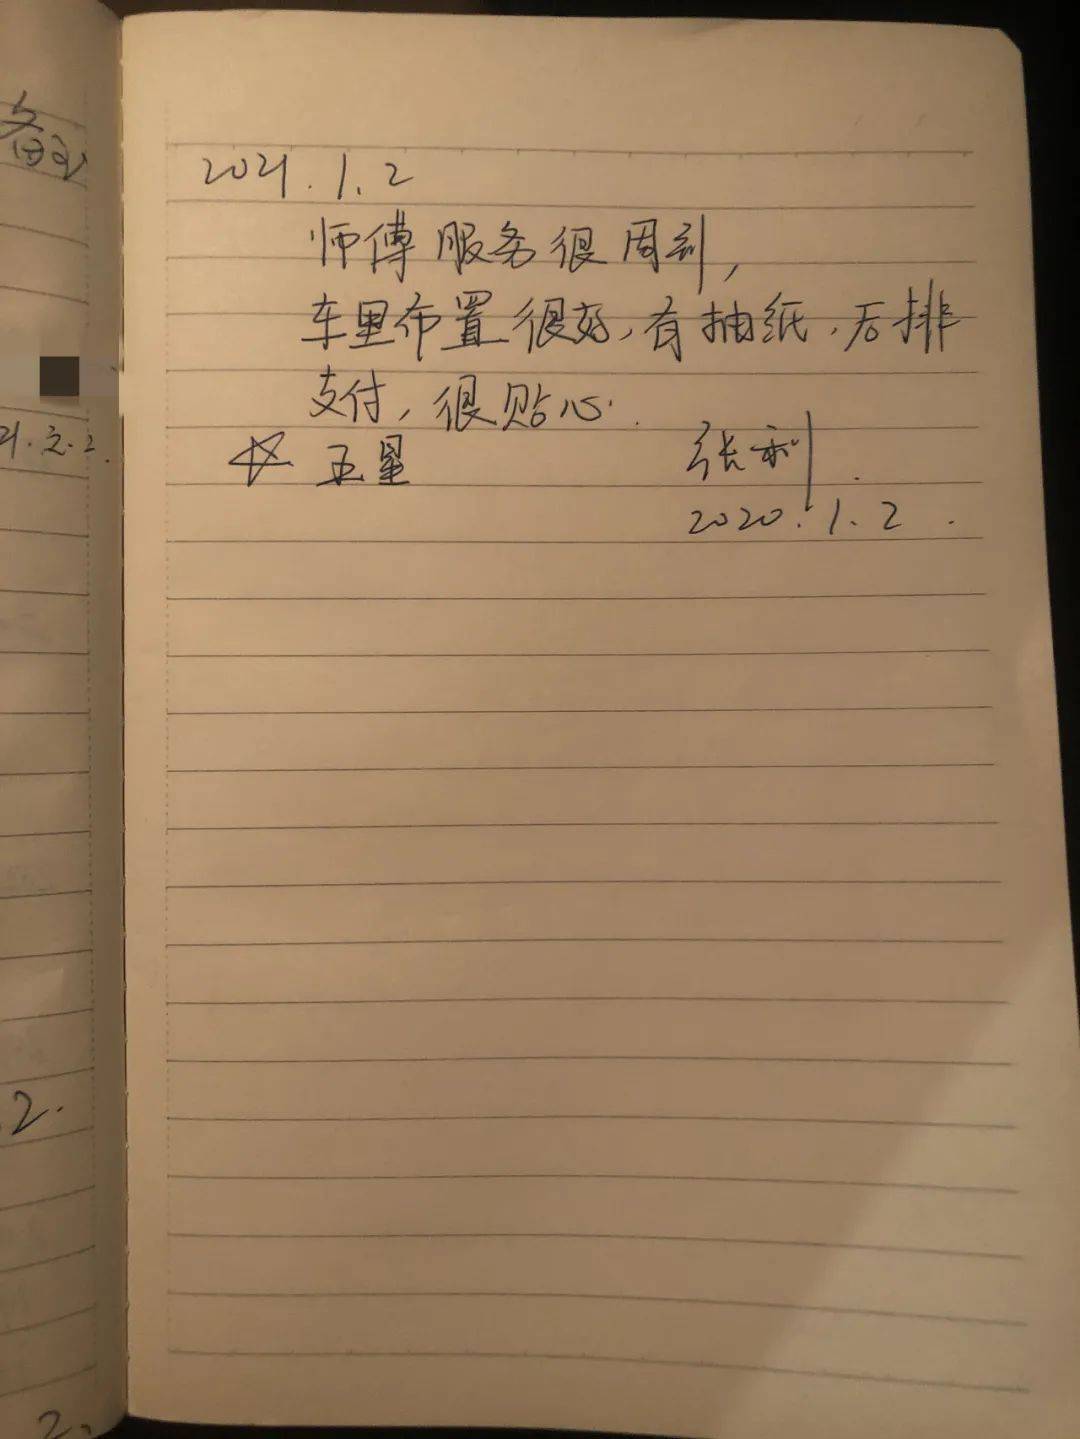 2021.1.2
师傅服务很周到,
车里布置很好,有抽纸,后排
支付,很贴心.
☆ 五星
张利.
2020.1.2.
2.
2.